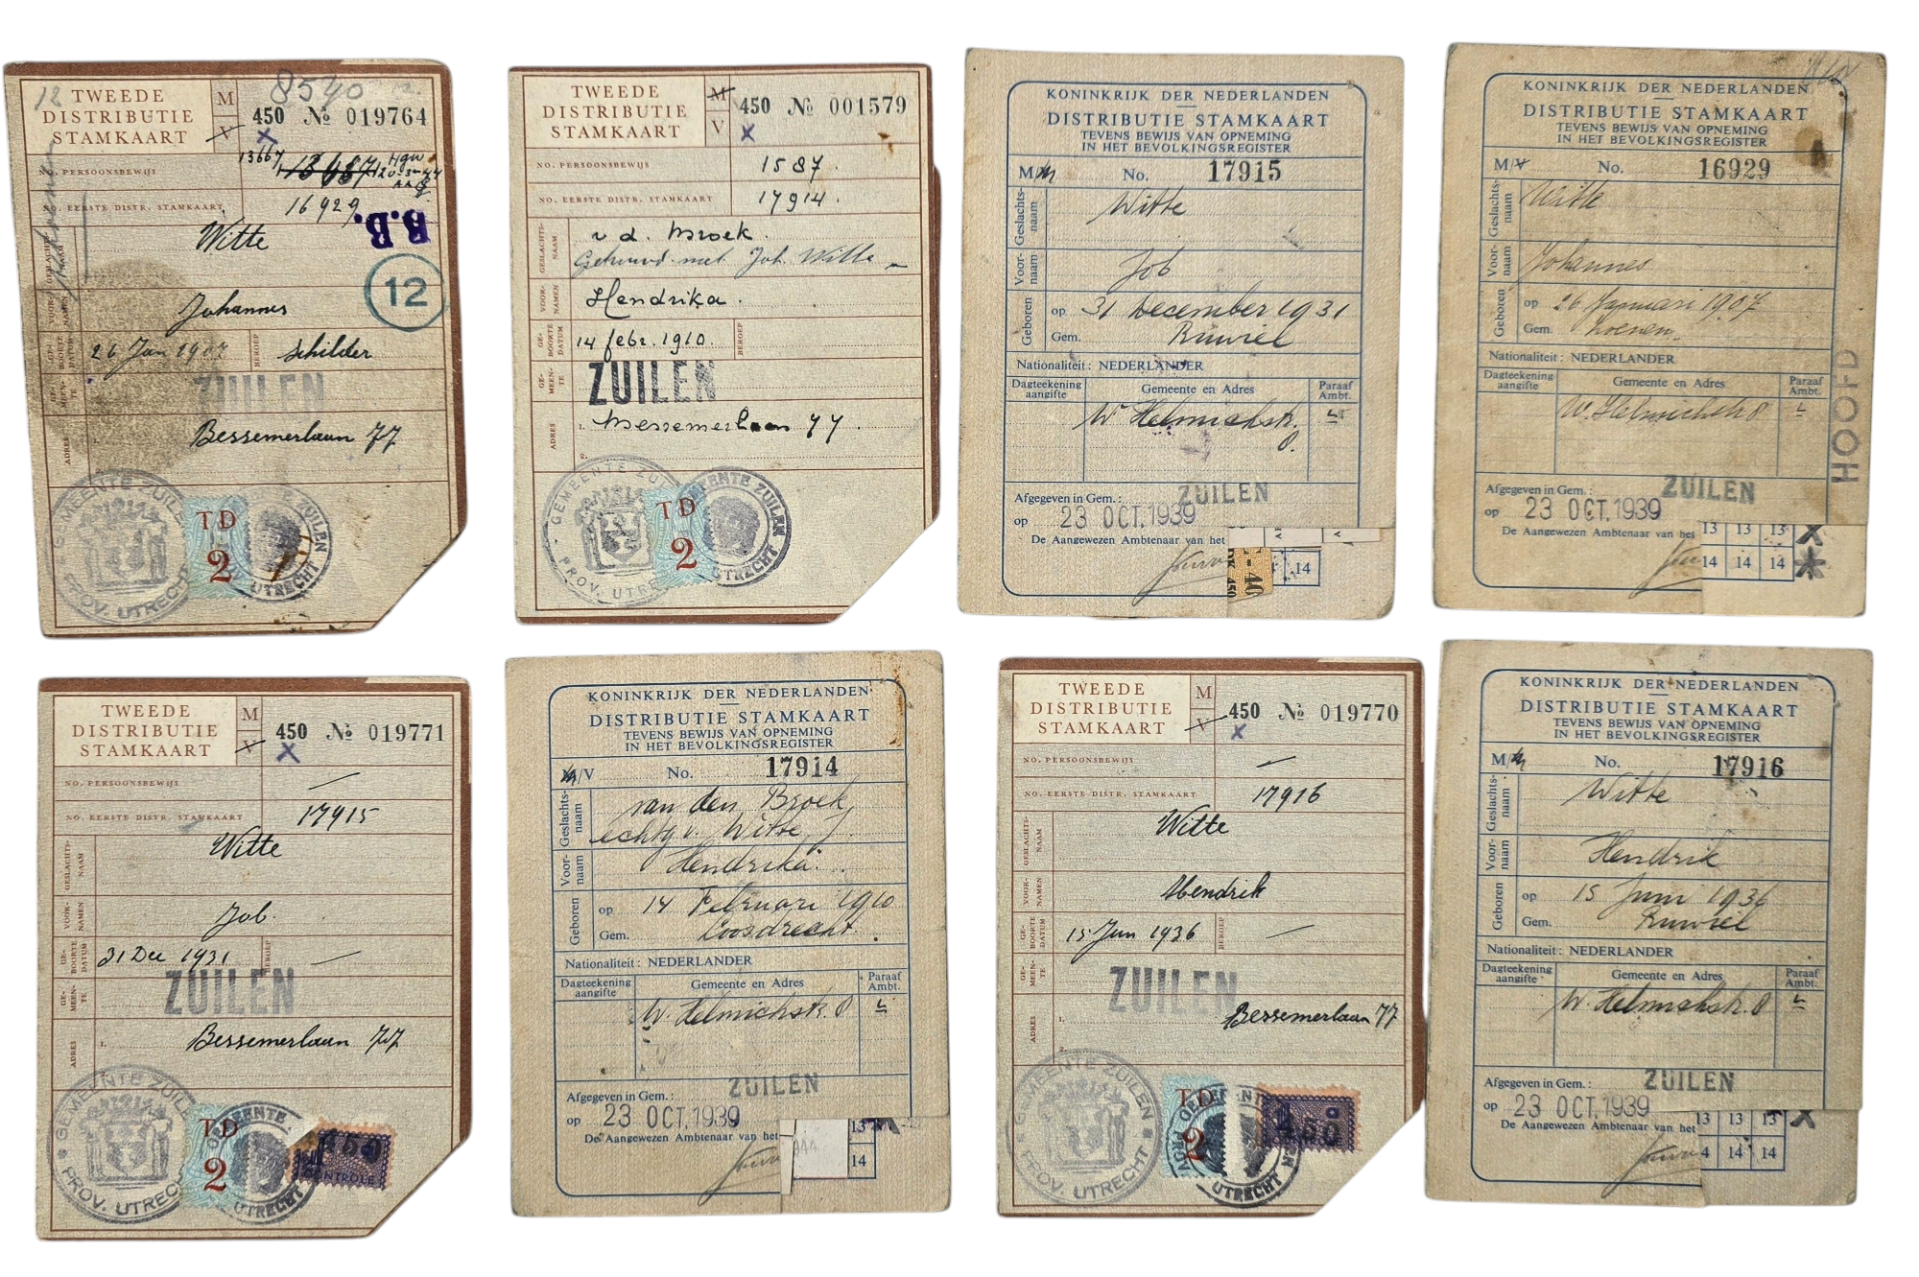 12
8540
TWEEDE
DISTRIBUTIE
STAMKAART
M
V
450 № 019764
X
NO. PERSOONSBEWIJS
13667
13687
NO. EERSTE DISTR. STAMKAART
16929
B.B.
GESLACHTS-
NAAM
Witte
12
VOOR-
NAMEN
Johannes
GE-
BOORTE
DATUM
26 Jan 1907
BEROEP
Schilder
GE-
MEEN-
TE
ZUILEN
ADRES
1.
Bessemerlaan 77
GEMEENTE ZUILEN
PROV. UTRECHT
TD
2
TWEEDE
DISTRIBUTIE
STAMKAART
M
V
450 № 001579
X
NO. PERSOONSBEWIJS
1587.
NO. EERSTE DISTR. STAMKAART
17914.
GESLACHTS-
NAAM
v. d. Broek.
Gehuwd met Joh. Witte
VOOR-
NAMEN
Hendrika.
GE-
BOORTE
DATUM
14 febr. 1910.
BEROEP
GE-
MEEN-
TE
ZUILEN
ADRES
1. Bessemerlaan 77.
2.
GEMEENTE ZUILEN
PROV. UTRECHT
TD
2
KONINKRIJK DER NEDERLANDEN
DISTRIBUTIE STAMKAART
TEVENS BEWIJS VAN OPNEMING
IN HET BEVOLKINGSREGISTER
M/V No. 17915
Geslachts-
naam
Witte
Voor-
naam
Job
Geboren
op 31 December 1931
Gem. Ruwiel
Nationaliteit: NEDERLANDER
Dagteekening
aangifte
Gemeente en Adres
Paraaf
Ambt.
W. Helmichstr.
8.
Afgegeven in Gem.: ZUILEN
op 23 OCT. 1939
De Aangewezen Ambtenaar van het
14
KONINKRIJK DER NEDERLANDEN
DISTRIBUTIE STAMKAART
TEVENS BEWIJS VAN OPNEMING
IN HET BEVOLKINGSREGISTER
M/V No. 16929
Geslachts-
naam
Witte
Voor-
naam
Johannes
Geboren
op 26 Januari 1907
Gem. Loenen.
Nationaliteit: NEDERLANDER
Dagteekening
aangifte
Gemeente en Adres
Paraaf
Ambt.
W. Helmichstr 8
HOOFD
Afgegeven in Gem.: ZUILEN
op 23 OCT. 1939
De Aangewezen Ambtenaar van het
13 13 13
14 14 14
TWEEDE
DISTRIBUTIE
STAMKAART
M
V
450 № 019771
X
NO. PERSOONSBEWIJS
—
NO. EERSTE DISTR. STAMKAART
17915
GESLACHTS-
NAAM
Witte
VOOR-
NAMEN
Job.
GE-
BOORTE
DATUM
31 Dec 1931
BEROEP
—
GE-
MEEN-
TE
ZUILEN
ADRES
1.
Bessemerlaan 77
GEMEENTE ZUILEN
PROV. UTRECHT
TD
2
450
CONTROLE
KONINKRIJK DER NEDERLANDEN
DISTRIBUTIE STAMKAART
TEVENS BEWIJS VAN OPNEMING
IN HET BEVOLKINGSREGISTER
M/V No. 17914
Geslachts-
naam
van den Broek,
echtg v. Witte
Voor-
naam
Hendrika.
Geboren
op 14 Februari 1910
Gem. Loosdrecht.
Nationaliteit: NEDERLANDER
Dagteekening
aangifte
Gemeente en Adres
Paraaf
Ambt.
W. Helmichstr. 8
Afgegeven in Gem.: ZUILEN
op 23 OCT. 1939
De Aangewezen Ambtenaar van het
13
14
TWEEDE
DISTRIBUTIE
STAMKAART
M
V
450 № 019770
X
NO. PERSOONSBEWIJS
—
NO. EERSTE DISTR. STAMKAART
17916
GESLACHTS-
NAAM
Witte
VOOR-
NAMEN
Hendrik
GE-
BOORTE
DATUM
15 Jun 1936
BEROEP
—
GE-
MEEN-
TE
ZUILEN
ADRES
1.
Bessemerlaan 77
2.
GEMEENTE ZUILEN
PROV. UTRECHT
TD
2
450
KONINKRIJK DER NEDERLANDEN
DISTRIBUTIE STAMKAART
TEVENS BEWIJS VAN OPNEMING
IN HET BEVOLKINGSREGISTER
M/V No. 17916
Geslachts-
naam
Witte
Voor-
naam
Hendrik
Geboren
op 15 Juni 1936
Gem. Ruwiel
Nationaliteit: NEDERLANDER
Dagteekening
aangifte
Gemeente en Adres
Paraaf
Ambt.
W. Helmichstr. 8
Afgegeven in Gem.: ZUILEN
op 23 OCT. 1939
De Aangewezen Ambtenaar van het
13 13 13
4 14 14